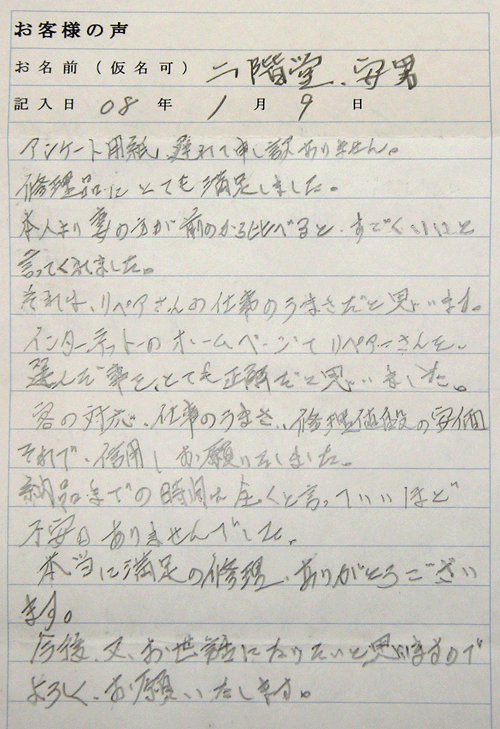 お客様の声
お名前(仮名可) 二階堂、安男
記入日 08 年 1 月 9 日
アンケート用紙、遅れて申し訳ありません。
修理品にとても満足しました。
本人より妻の方が前のから比べると、すごくいいと
言ってくれました。
それは、リペアさんの仕事のうまさだと思います。
インターネットのホームページでリペアーさんを、
選んだ事を、とても正解だと思いました。
客の対応、仕事のうまさ、修理値段の安価
それで、信用しお願いしました。
納品までの時間も全くと言っていいほど
不安はありませんでした。
本当に満足の修理、ありがとうござい
ます。
今後、又、お世話になりたいと思いますので
よろしく、お願いいたします。